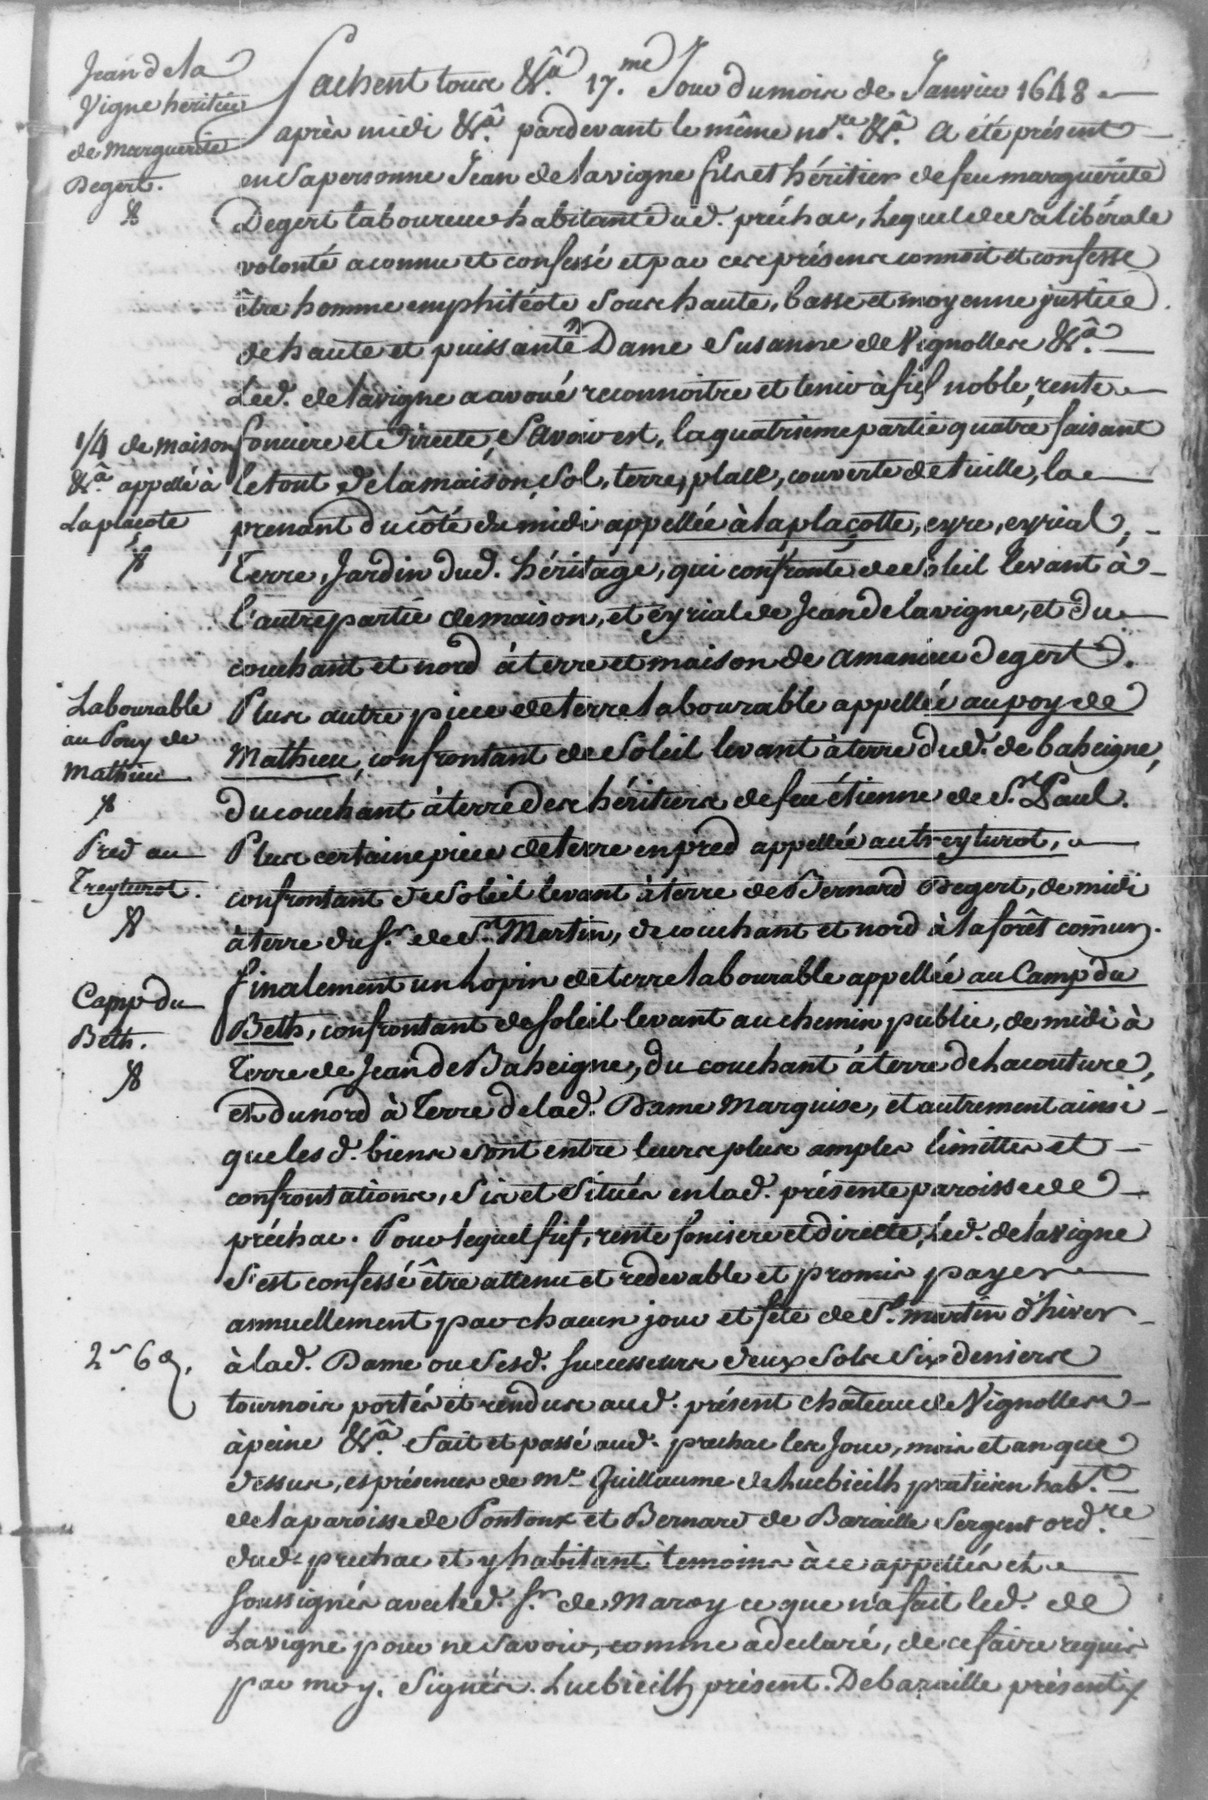 Jean dela
Vigne héritier
de Marguerite
Degert.
Sachent tous &ca. 17.me Jour du mois de Janvier 1648
après midi &ca. pardevant le même nore. &ca. a été présent
en sa personne Jean de lavigne fils et héritier de feu marguerite
Degert laboureur habitant dud. préchac, Lequel de sa libérale
volonté a connu et confessé et par ces présens connoit et confesse
être homme emphitéote sous haute, basse et moyenne justice
de haute et puissante Dame Susanne de Vignolles &ca.
Led. de lavigne a avoué reconnoitre et tenir à fief noble, rente
1/4 de maison
&ca. appellé à
Laplaçote
foncière et directe, Savoir est, la quatrieme partie quatre faisant
le tout de la maison, sol, terre, place, couverte de tuille, la
prenant du côté du midi appellée à la plaçotte, eyre, eyrial,
Terre, Jardin dud. héritage, qui confronte de soleil levant à
l'autre partie de maison, et eyrial de Jean de lavigne, et du
couchant et nord à terre et maison de amanieu degert.
Labourable
au Pouy de
Mathieu
Plus autre piece de terre labourable appellée au poy de
Mathieu, confrontant de soleil levant à terre dud. de baheigne,
du couchant à terre des héritiers de feu étienne de St. Paul.
Pred au
Treyturot.
Plus certaine piece de terre en pred appellée au treyturot,
confrontant de soleil levant à terre de Bernard Degert, de midi
à terre du sr. de St. Martin, de couchant et nord à la forêt comune.
Camp du
Beth.
finalement un lopin de terre labourable appellée au Camp du
Beth, confrontant de soleil levant au chemin public, de midi à
Terre de Jean de Baheigne, du couchant à terre de Lacouture,
et du nord à Terre de lad. Dame Marquise, et autrement ainsi
que lesd. biens sont entre leurs plus amples limittes et
confrontations, sis et situés en lad. présente paroisse de
préchac. Pour lequel fief, rente fonciere et directe, Led. de lavigne
s'est confessé être attenu et redevable et promis payer
annuellement par chacun jour et fête de St. martin d'hiver
2s 6d.
à lad. Dame ou sesd. successeurs deux sols six deniers
tournois portés et rendus aud. présent château de Vignolles
à peine &ca. fait et passé aud. prechac les Jour, mois et an que
dessus, es présences de me. Guillaume de Lucbieilh praticien habt.
de la paroisse de Pontonx et Bernard de Baraille Sergent ordre.
dud. prechac et y habitant temoins à ce appellés et
soussignés avec led. sr. de Maroy ce que n'a fait led. de
Lavigne pour ne savoir, comme a declaré, de ce faire requis
par moy. Signés. Lucbieilh présent. Debaraille présent